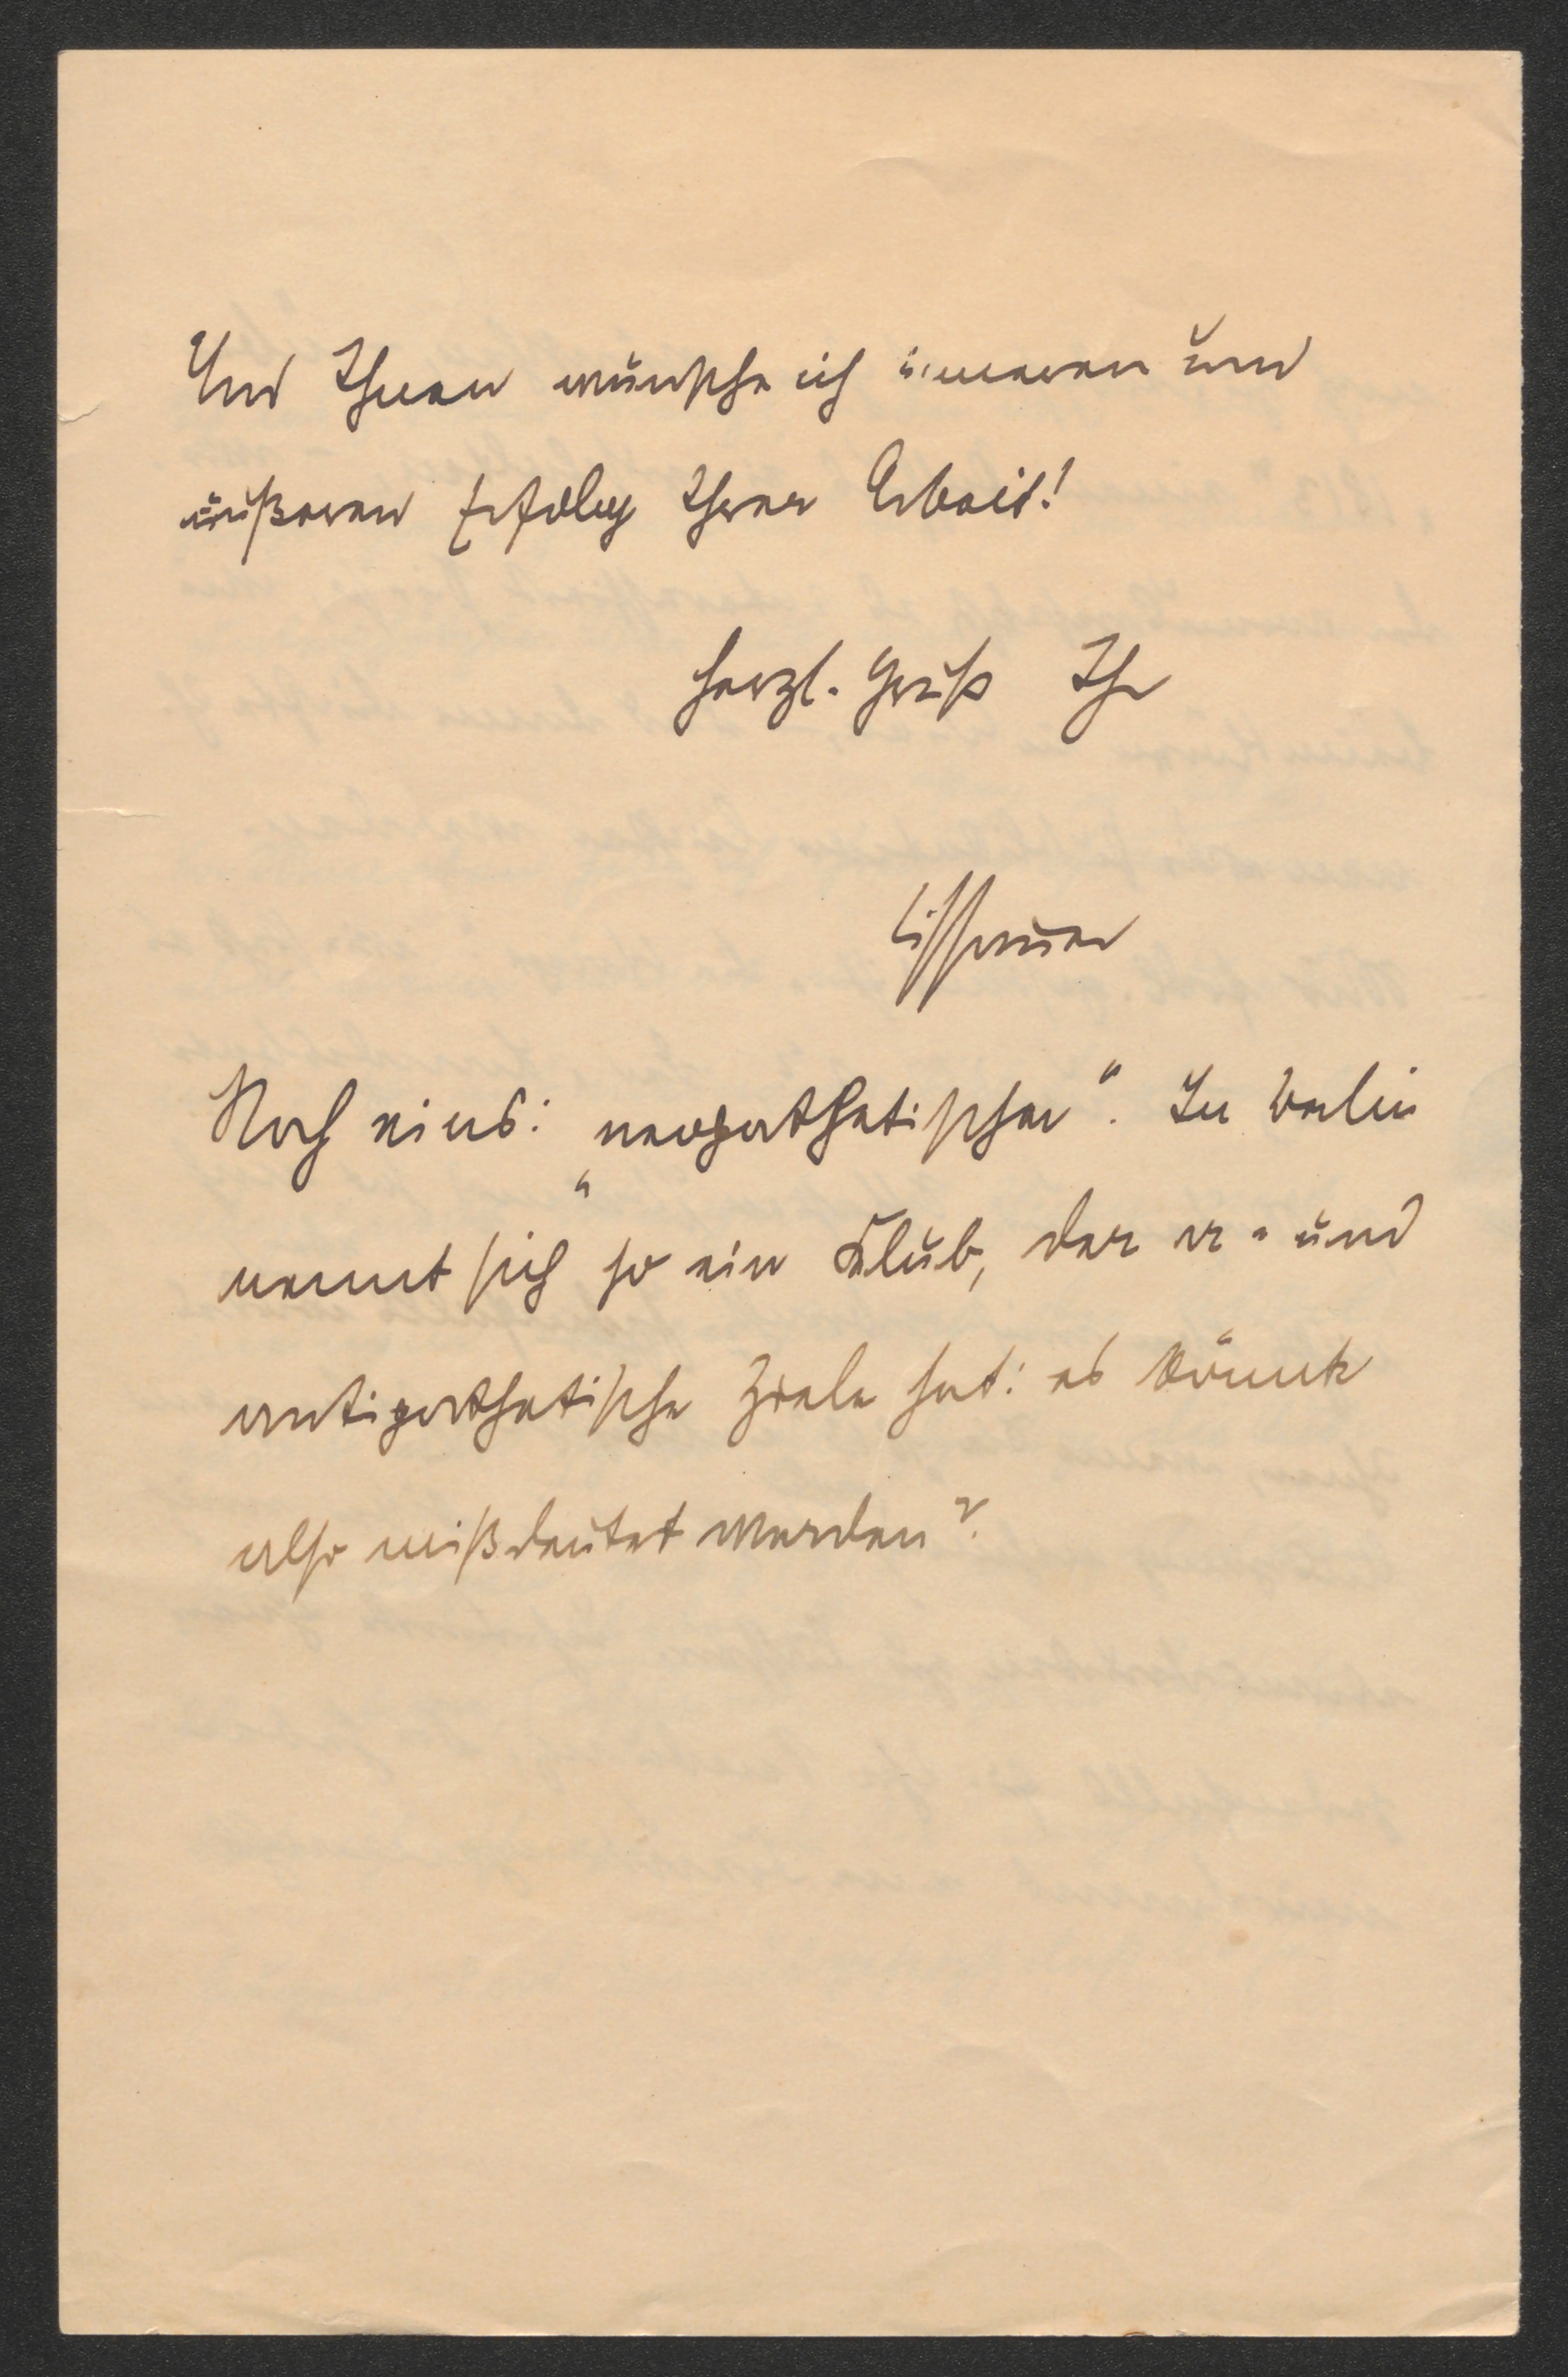 Und Ihnen wünsche ich inneren und
äußeren Erfolg Ihrer Arbeit!
Herzl. Gruß Ihr
Lissauer
Noch eins: „neopathetischer“. In Berlin
nennt sich so ein Klub, der a- und
antipathetische Ziele hat: es könnte
also mißdeutet werden?